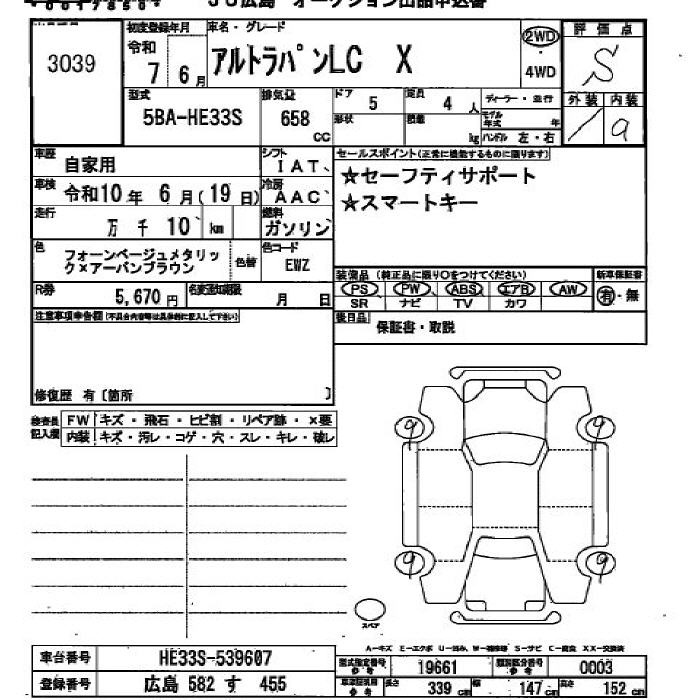 JU広島 オークション出品申込書
3039
初度登録年月
令和
7 6月
車名・グレード
アルトラパンLC X
2WD
・
4WD
評価点
S
型式
5BA-HE33S
排気量
658
CC
ドア 5
定員 4 人
形状
積載 kg
ディーラー・並行
モデル年式 年
ハンドル 左・右
外装 内装
/ a
車歴 自家用
シフト IAT、
セールスポイント(正常に機能するものに限ります)
★セーフティサポート
★スマートキー
車検 令和10年 6月(19日)
冷房 AAC、
走行 万 千 10 km
燃料 ガソリン
色 フォーンベージュメタリッ
ク×アーバンブラウン
色替
色コード
EWZ
装備品(純正品に限り○をつけてください)
新車保証書
PS PW ABS エアB AW
SR ナビ TV カワ
有・無
R券 5,670円
名変通知期限 月 日
後日品 保証書・取説
注意事項申告欄(不具合内容等は具体的に記入して下さい)
修復歴 有〔箇所 〕
検査員
記入欄
FW キズ・飛石・ヒビ割・リペア跡・×要
内装 キズ・汚レ・コゲ・穴・スレ・キレ・破レ
9 9
9 9
スペア
A-キズ E-エクボ U-凹み W-補修跡 S-サビ C-腐食 XX-交換済
車台番号 HE33S-539607
登録番号 広島 582 す 455
型式指定番号
参考
19661
類別区分番号
参考
0003
車検証記載
参考
長さ 339 cm
幅 147 cm
高さ 152 cm